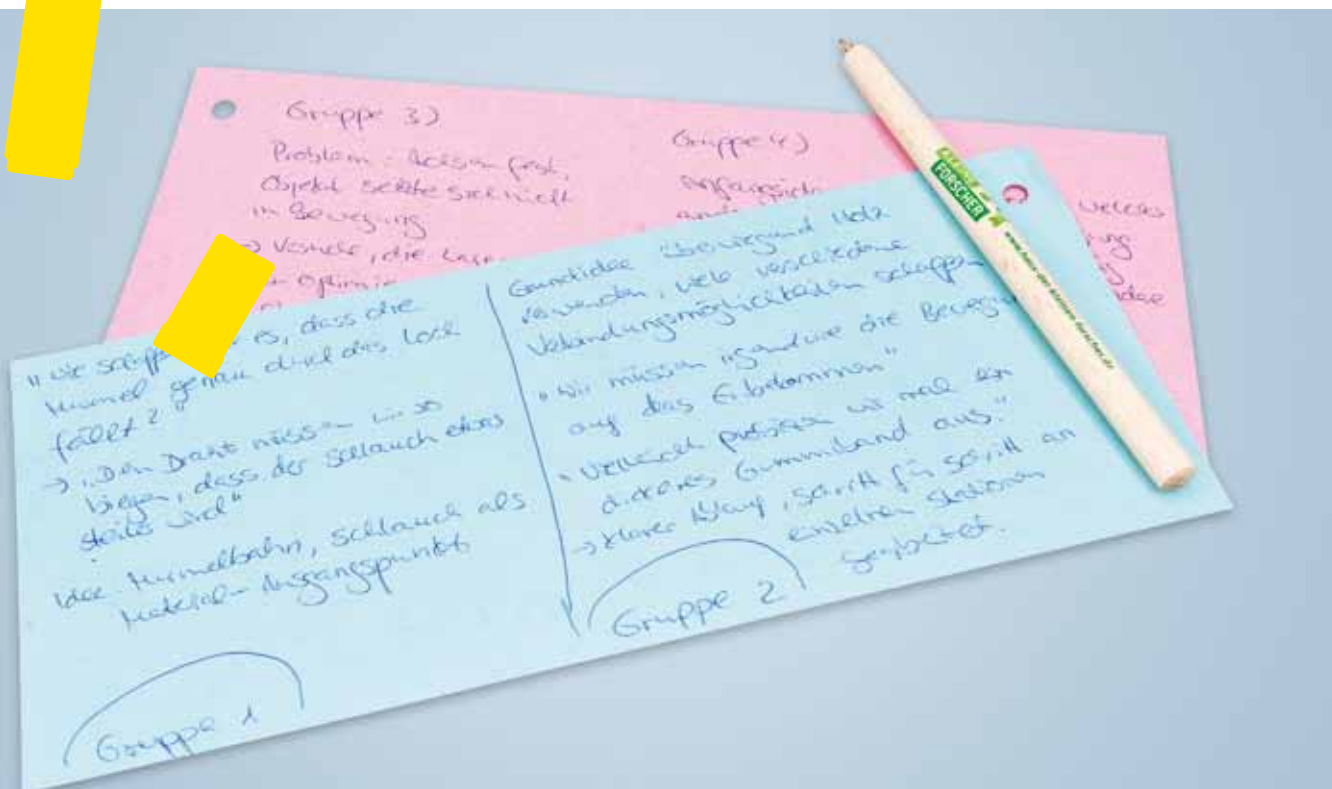 Gruppe 3)
Problem: Achsen fest,
Objekt setzte sich nicht
in Bewegung
→ Versuch, die
→ Optimie
Gruppe 4)
Anfangside
weiteres
"Wie es, dass die
Murmel genau durch das Loch
fällt?"
→ "Den Draht müssen wir so
biegen, dass der Schlauch etwas
steiler wird"
Idee Murmelbahn, Schlauch als
Material-Ausgangspunkt
Gruppe 1
Grundidee überwiegend Holz
verwenden, viele verschiedene
Verbindungsmöglichkeiten schaffen
"Wir müssen irgendwie die Bewegun
auf das bekommen"
"Vielleicht probieren wir mal ein
dickeres Gummiband aus."
→ klarer Ablauf, Schritt für Schritt an
einzelnen Stationen
gearbeitet.
Gruppe 2
FORSCHER
www.haus-der-kleinen-forscher.de